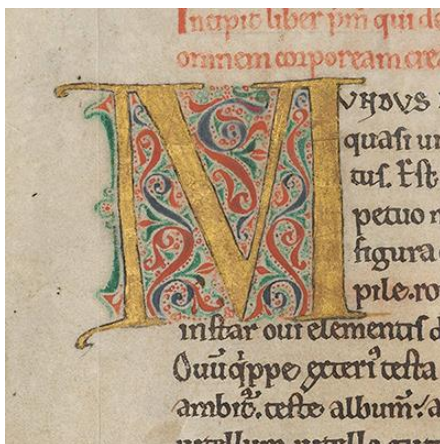 Incipit liber pm̄ qui de
omnem corpoream crea
MUNDUS
quasi un
tus. Est
petuo m
figura
pile. ro
instar oui elementis d
Ouū q̇ppe exterı᾽ testa
ambit̄. teste albumı̄: a
uitellum uitello gut